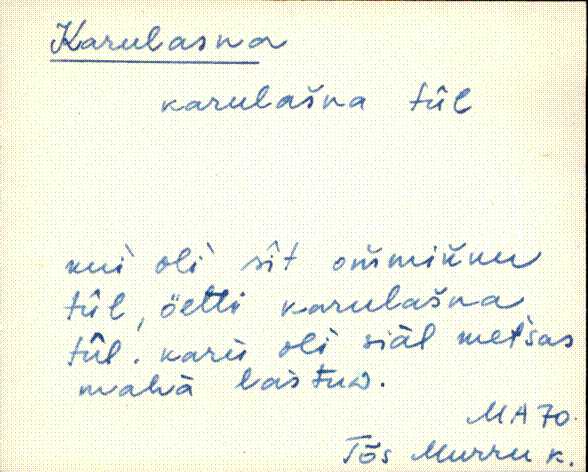 Karulasna
karulašna tûl
kui oli sît om̆miňnu
tûl, öetti karulašna
tûl. karu oli siäl metsas
mahä lastud.
MA 70.
Tõs Murru k.